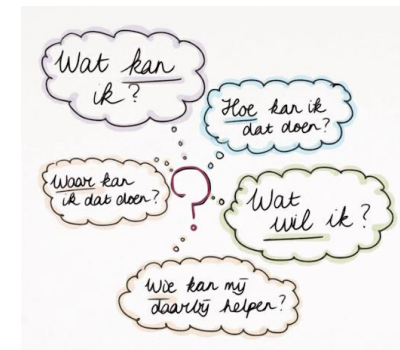 Wat kan
ik?
Hoe kan ik
dat doen?
Waar kan
ik dat doen?
?
Wat
wil ik?
Wie kan mij
daarbij helpen?